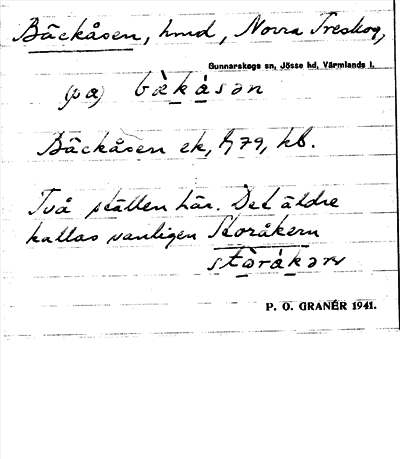 Bäckåsen, hmd, Norra Treskog,
Gunnarskogs sn, Jösse hd, Värmlands l.
(pa) bèkásən
Bäckåsen ek, 1/79, kb.
Två ställen här. Det äldre
kallas vanligen Storåkern
P. O. GRANÉR 1941.